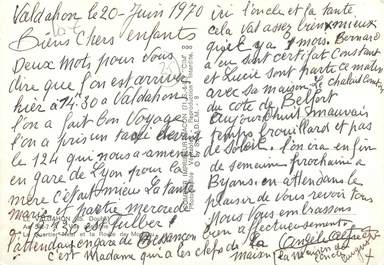 Valdahon le 20 - Juin 1970
Biens chers enfants
Deux mots pour vous
dire que l'on est arrivé
hier à 14:30 a Valdahon
l'on a fait bon Voyage
l'on a pris un taxi devant
le 124 qui nous a amené
en gare de Lyon pour la
mère c'était mieux La tante
Marie partie mercredi
à 13:30 est Gilbert
l'attendait en gare de Besançon
c'est Madame qui a les clefs de la maison
ici l'oncle et la tante
cela va assez bien mieux
qu'il y a 1 mois. Bernard
a eu son certificat Constant
et Lucie sont parti ce matin
avec sa maison
du cote de Belfort
aujourd'hui mauvais
temps brouillard et pas
de soleil. l'on ira en fin
de semaine prochaine à
Byans. en attendant le
plaisir de vous revoir tous
Nous vous embrassons
bien affectueusement